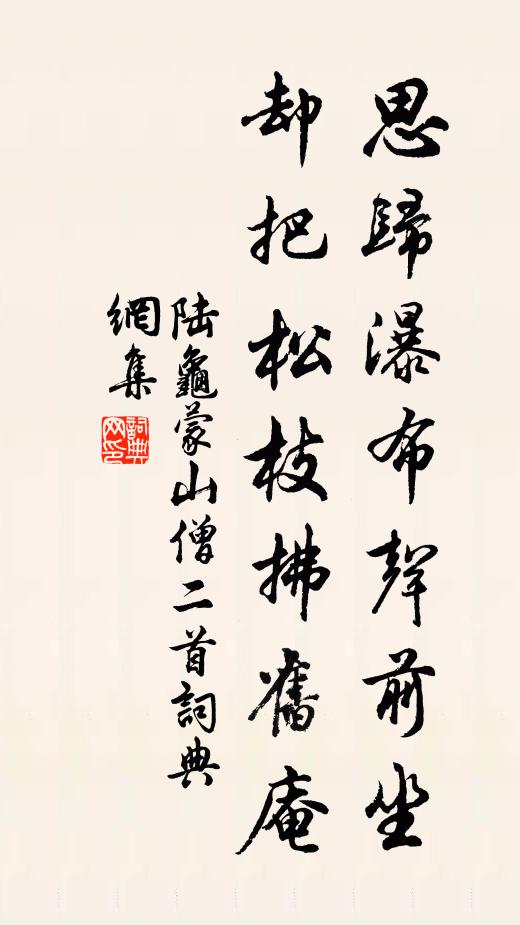 思歸瀑布聲前坐
却把松枝拂舊庵
陆龜蒙山僧二首詞典
網集
詞典
网印